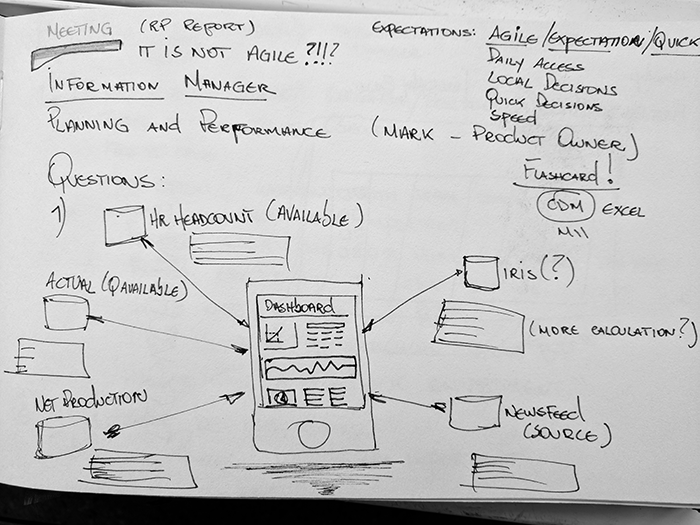 MEETING (RP REPORT)
IT IS NOT AGILE ?!!?
INFORMATION MANAGER
PLANNING AND PERFORMANCE (MARK - PRODUCT OWNER)
EXPECTATIONS: AGILE/EXPECTATION/QUICK
DAILY ACCESS
LOCAL DECISIONS
QUICK DECISIONS
SPEED
FLASHCARD!
CDM EXCEL
QUESTIONS:
1)
HR HEADCOUNT (AVAILABLE)
ACTUAL (QAVAILABLE)
NET PRODUCTION
DASHBOARD
IRIS (?)
(MORE CALCULATION?)
NEWSFEED
(SOURCE)